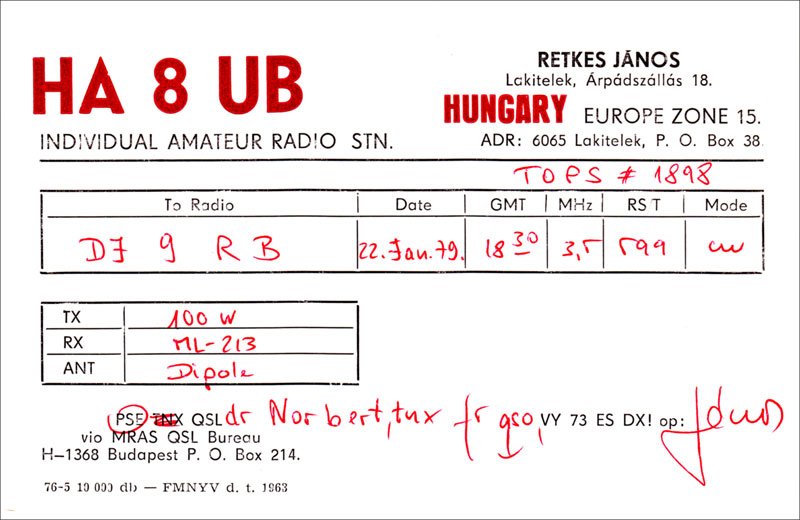 HA 8 UB
INDIVIDUAL AMATEUR RADIO STN.
RETKES JÁNOS
Lakitelek, Árpádszállás 18.
HUNGARY EUROPE ZONE 15.
ADR: 6065 Lakitelek, P. O. Box 38
TOPS # 1898
To Radio Date GMT MHz RST Mode
DJ 9 RB 22. Jan. 79. 18 30 3,5 599 cw
TX 100 W
RX ML-213
ANT Dipole
PSE TNX QSL dr Norbert, tnx fr qso, VY 73 ES DX! op: János
via MRAS QSL Bureau
H-1368 Budapest P. O. Box 214.
76-5 10 000 db — FMNYV d. t. 1963